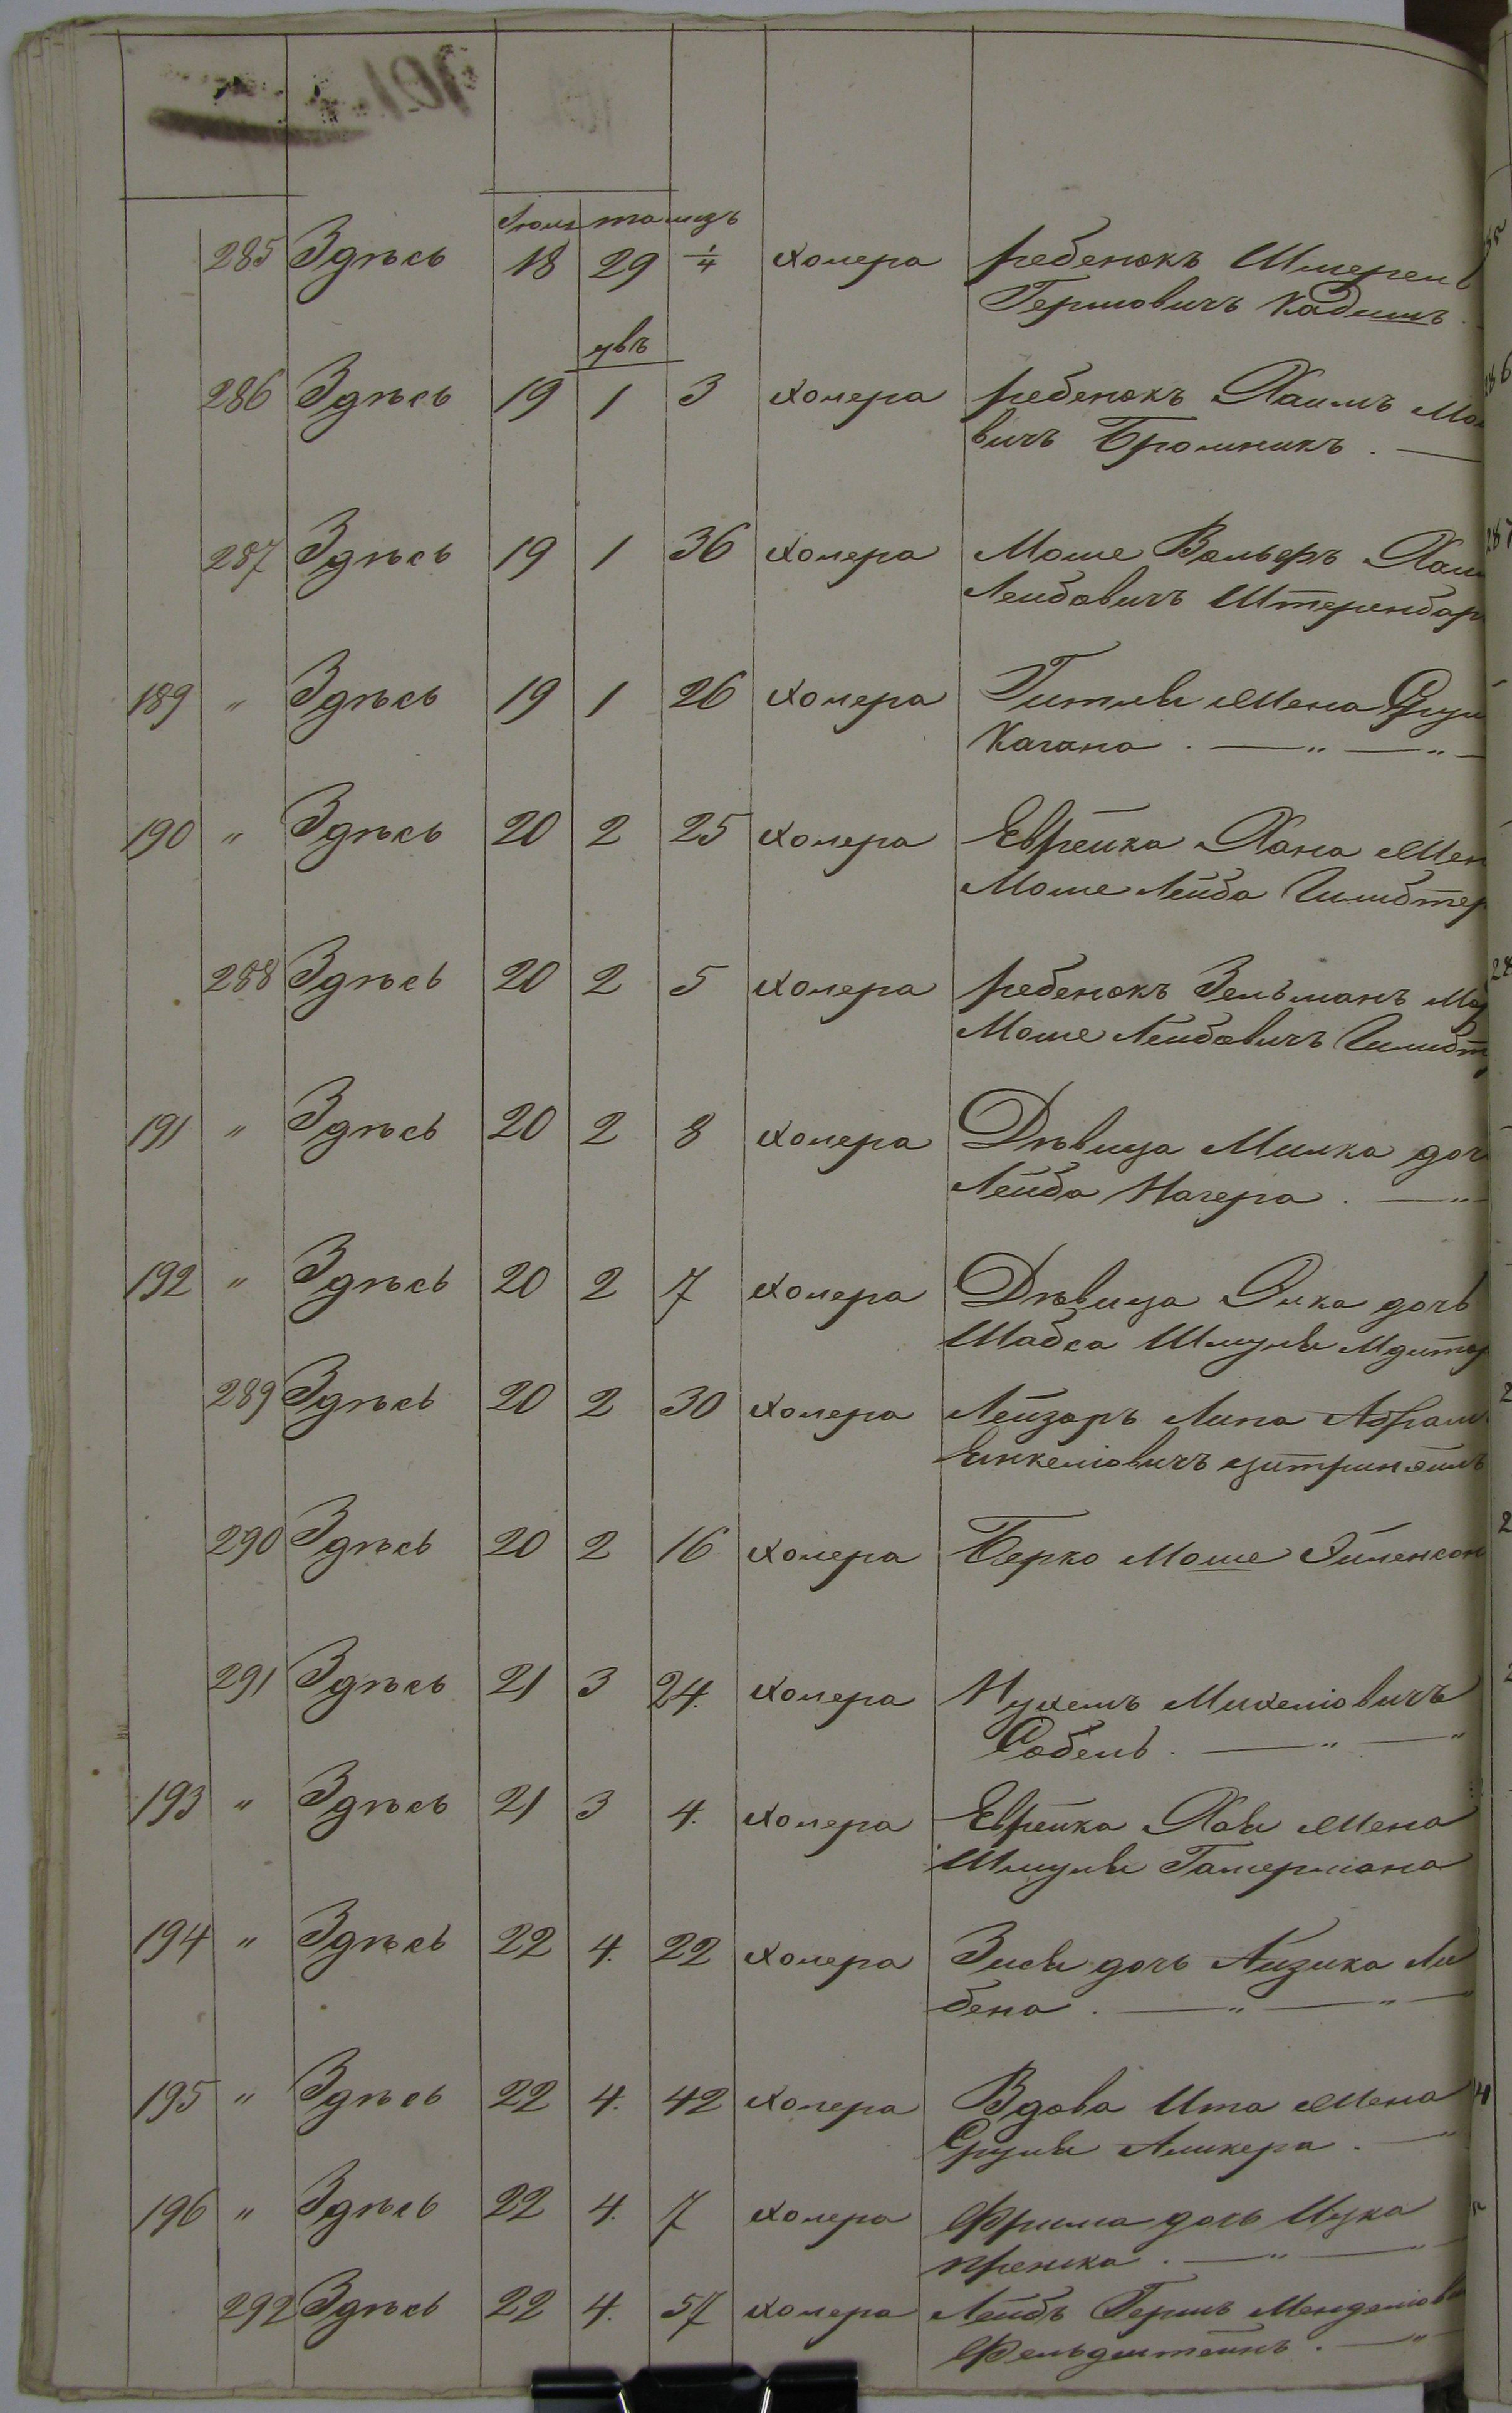 Іюль тамузъ
285 Здѣсь 18 29 1/4 холера ребенокъ Шмерель
Гершовичъ Кадишъ
увъ
286 Здѣсь 19 1 3 холера ребенокъ Хаимъ Мо
вичъ Бромникъ . —
287 Здѣсь 19 1 36 холера Моше Вольфъ Хаим
Лейбовичъ Штеренбар
189 " Здѣсь 19 1 26 холера Гитля жена Сруля
Кагана . — " — " —
190 " Здѣсь 20 2 25 холера Еврейка Хана жен
Моше Лейба
288 Здѣсь 20 2 5 холера ребенокъ Зельманъ
Моше Лейбовичъ
191 " Здѣсь 20 2 8 холера Дѣвица Милка доч
Лейба Нагера . — "
192 " Здѣсь 20 2 7 холера Дѣвица Элка дочь
Шабса Шмуля
289 Здѣсь 20 2 30 холера Лейзоръ Липа Абрам
Еинкеліовичъ цитринъ
290 Здѣсь 20 2 16 холера Берко Моше
291 Здѣсь 21 3 24. холера Нухемъ Михеліовичъ
Собель . — " — "
193 " Здѣсь 21 3 4. холера Еврейка Хая жена
Шмуля Гатермана
194 " Здѣсь 22 4. 22 холера Зися дочь Айзика Ли
бена . — " — " —
195 " Здѣсь 22 4. 42 холера Вдова Ита жена
Сруля Аликера . — "
196 " Здѣсь 22 4. 7 холера Фрима дочь Ицка
— " — "
292 Здѣсь 22 4. 57 холера Лейбъ Гершъ Менделіови
Фельдштейнъ . — "